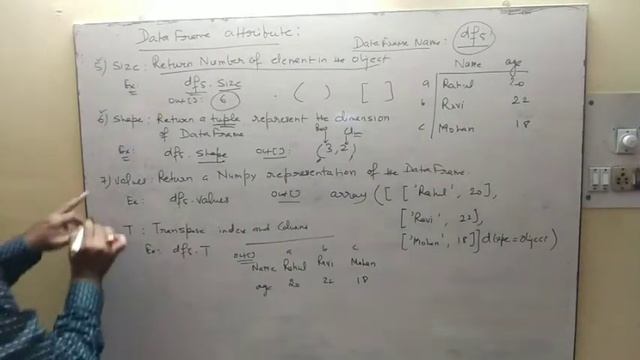 DataFrame attribute:
DataFrame Name: dfs
5) Size: Return Number of element in the object
Ex dfs.size
out[]: 6 . ( ) [ ]
Name age
a Rahul 20
b Ravi 22
c Mohan 18
6) Shape: Return a tuple represent the dimension
of DataFrame
Ex: dfs.shape out[]: (3,2)
7) Values: Return a Numpy representation of the DataFrame.
Ex: dfs.values out[] array([['Rahul', 20],
['Ravi', 22],
['Mohan', 18]] dtype=object)
T: Transpose index and Columns
Ex: dfs.T out[] a b c
Name Rahul Ravi Mohan
age 20 22 18